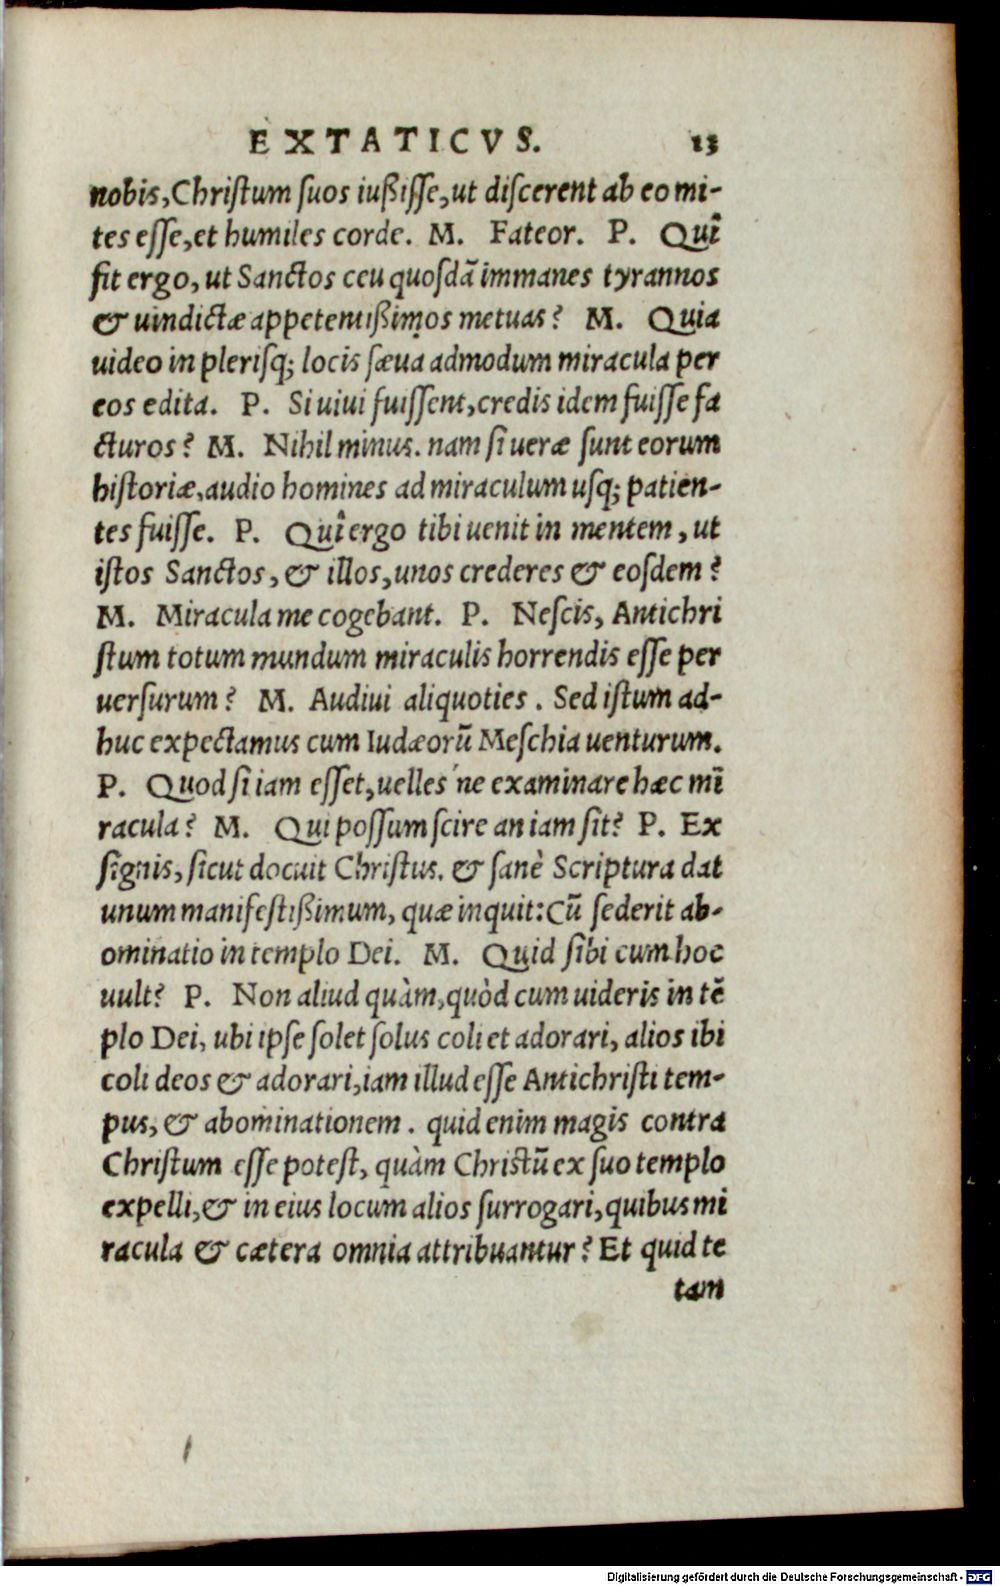 EXTATICVS. 13
nobis, Chriſtum ſuos iußiſſe, ut diſcerent ab eo mi-
tes eſſe, et humiles corde. M. Fateor. P. Quî
fit ergo, ut Sanctos ceu quoſdã immanes tyrannos
& uindictæ appetentißimos metuas? M. Quia
uideo in pleriſq; locis ſæua admodum miracula per
eos edita. P. Si uiui fuiſſent, credis idem fuiſſe fa
cturos? M. Nihil minus. nam ſi ueræ ſunt eorum
hiſtoriæ, audio homines ad miraculum uſq; patien-
tes fuiſſe. P. Quî ergo tibi uenit in mentem, ut
iſtos Sanctos, & illos, unos crederes & eoſdem?
M. Miracula me cogebant. P. Neſcis, Antichri
ſtum totum mundum miraculis horrendis eſſe per
uerſurum? M. Audiui aliquoties. Sed iſtum ad-
huc expectamus cum Iudæorũ Meſchia uenturum.
P. Quod ſi iam eſſet, uelles'ne examinare hæc mi
racula? M. Qui poſſum ſcire an iam ſit? P. Ex
ſignis, ſicut docuit Chriſtus. & ſanè Scriptura dat
unum manifeſtißimum, quæ inquit: Cũ ſederit ab-
ominatio in templo Dei. M. Quid ſibi cum hoc
uult? P. Non aliud quàm, quòd cum uideris in tẽ
plo Dei, ubi ipſe ſolet ſolus coli et adorari, alios ibi
coli deos & adorari, iam illud eſſe Antichriſti tem-
pus, & abominationem. quid enim magis contra
Chriſtum eſſe poteſt, quàm Chriſtũ ex ſuo templo
expelli, & in eius locum alios ſurrogari, quibus mi
racula & cætera omnia attribuantur? Et quid te
tam
Digitalisierung gefördert durch die Deutsche Forschungsgemeinschaft - DFG